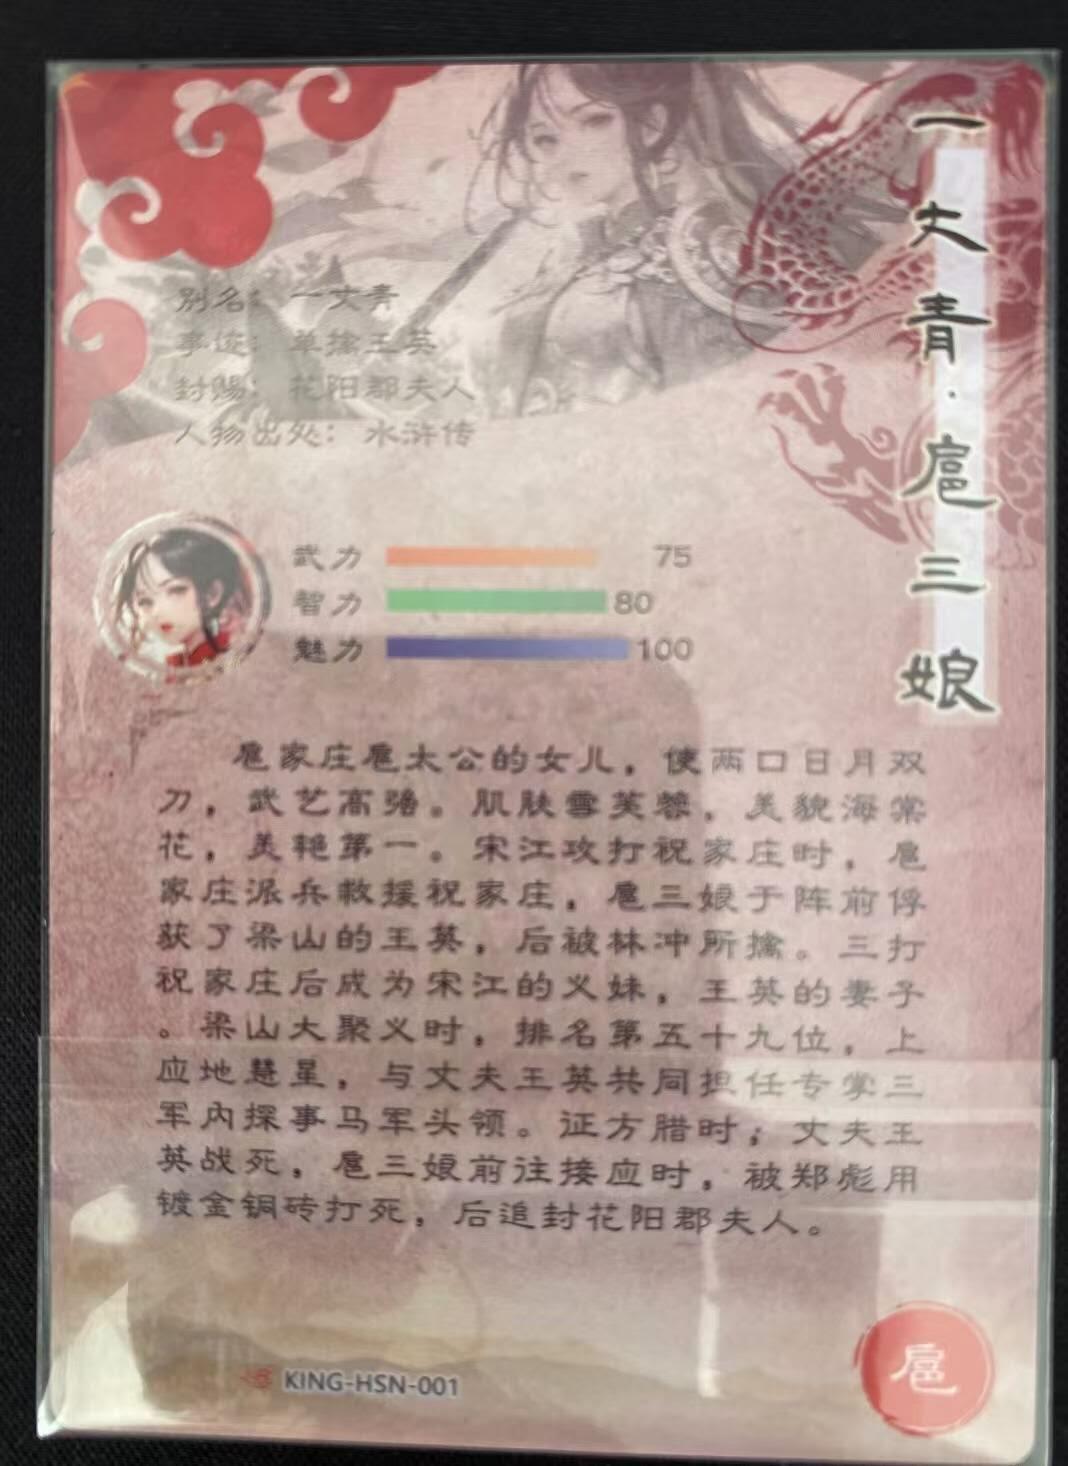 一丈青·扈三娘
别名：一丈青
事迹：单擒王英
封赐：花阳郡夫人
人物出处：水浒传
武力 75
智力 80
魅力 100
扈家庄扈太公的女儿，使两口日月双
刀，武艺高强。肌肤雪芙蓉，美貌海棠
花，美艳第一。宋江攻打祝家庄时，扈
家庄派兵救援祝家庄，扈三娘于阵前俘
获了梁山的王英，后被林冲所擒。三打
祝家庄后成为宋江的义妹，王英的妻子
。梁山大聚义时，排名第五十九位，上
应地慧星，与丈夫王英共同担任专掌三
军内探事马军头领。证方腊时，丈夫王
英战死，扈三娘前往接应时，被郑彪用
镀金铜砖打死，后追封花阳郡夫人。
KING-HSN-001
扈